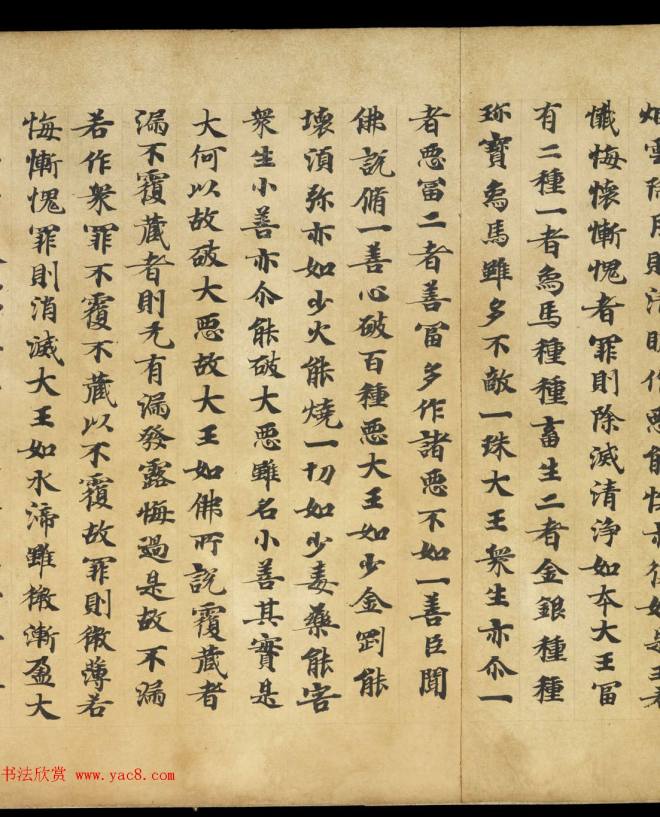 雲除月則清明作惡能悔亦復如是王若
懺悔懷慚愧者罪則除滅清淨如本大王冨
有二種一者象馬種種畜生二者金銀種種
珎寶象馬雖多不敵一珠大王衆生亦尒一
者惡冨二者善冨多作諸惡不如一善臣聞
佛說脩一善心破百種惡大王如少金剛能
壞湏弥亦如少火能燒一切如少毒藥能害
衆生小善亦尒能破大惡雖名小善其實是
大何以故破大惡故大王如佛所說覆藏者
漏不覆藏者則无有漏發露悔過是故不漏
若作衆罪不覆不藏以不覆故罪則微薄若
悔慚愧罪則消滅大王如水渧雖微漸盈大
书法欣赏 www.yac8.com